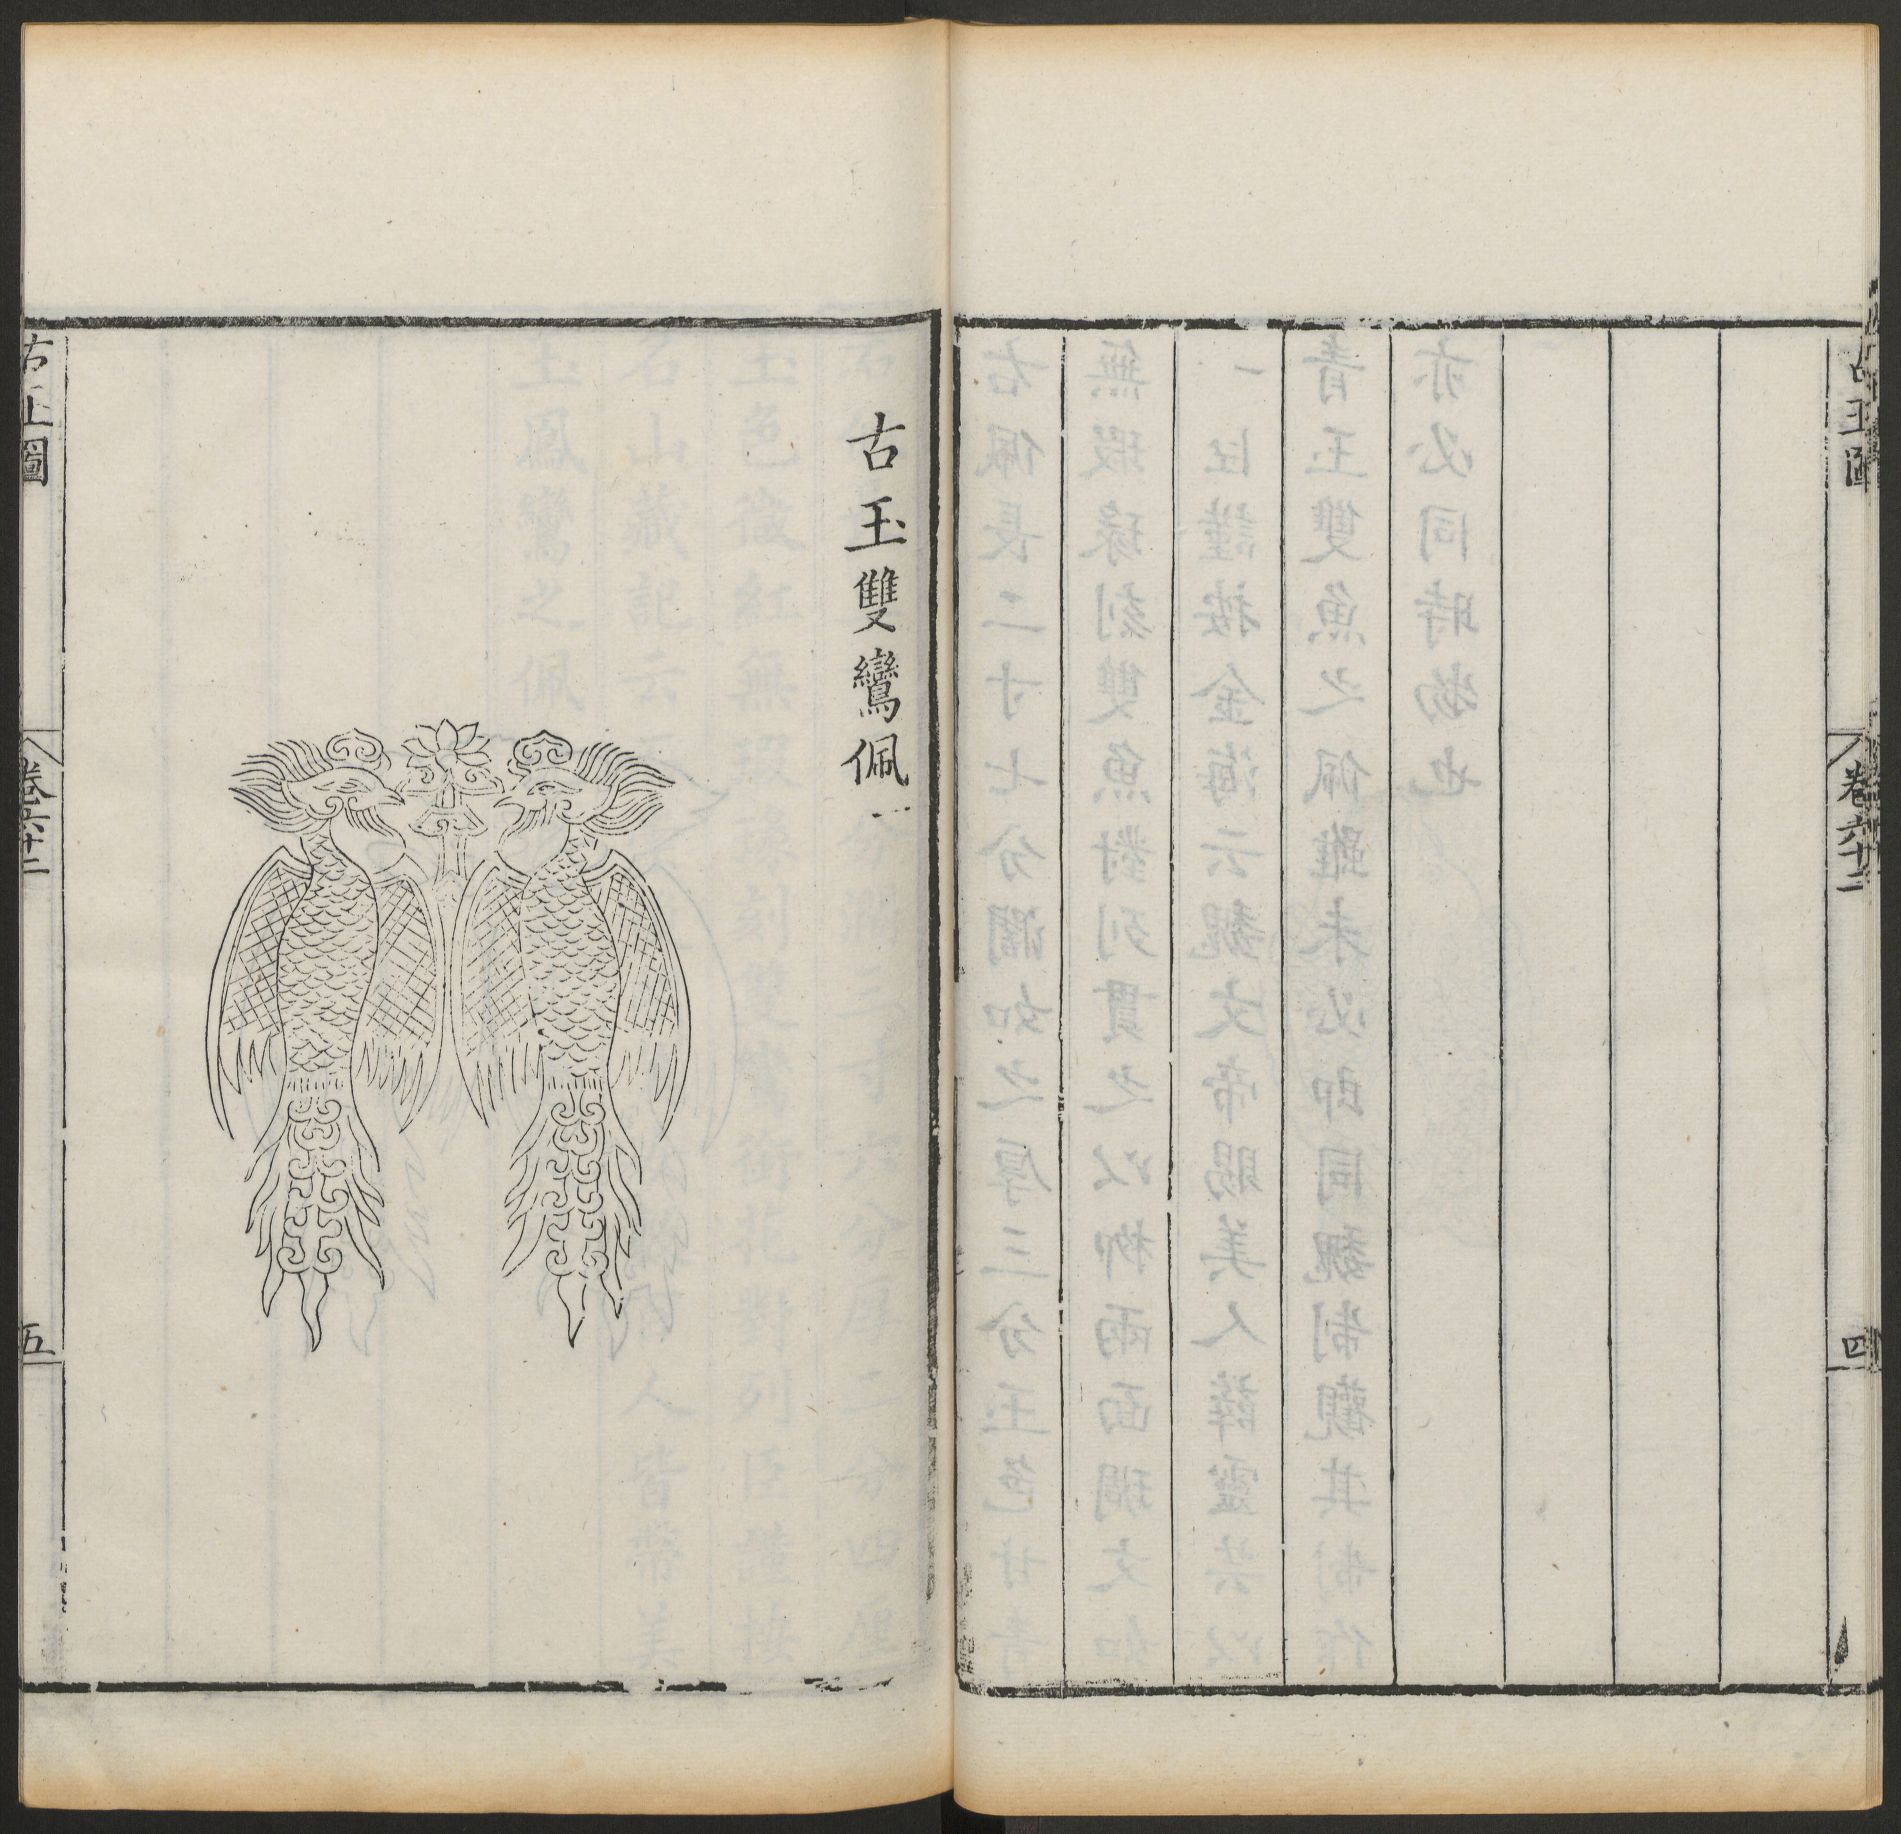 古玉圖
卷六十二
四
古玉雙鸞佩一
古玉圖
卷六十二
五